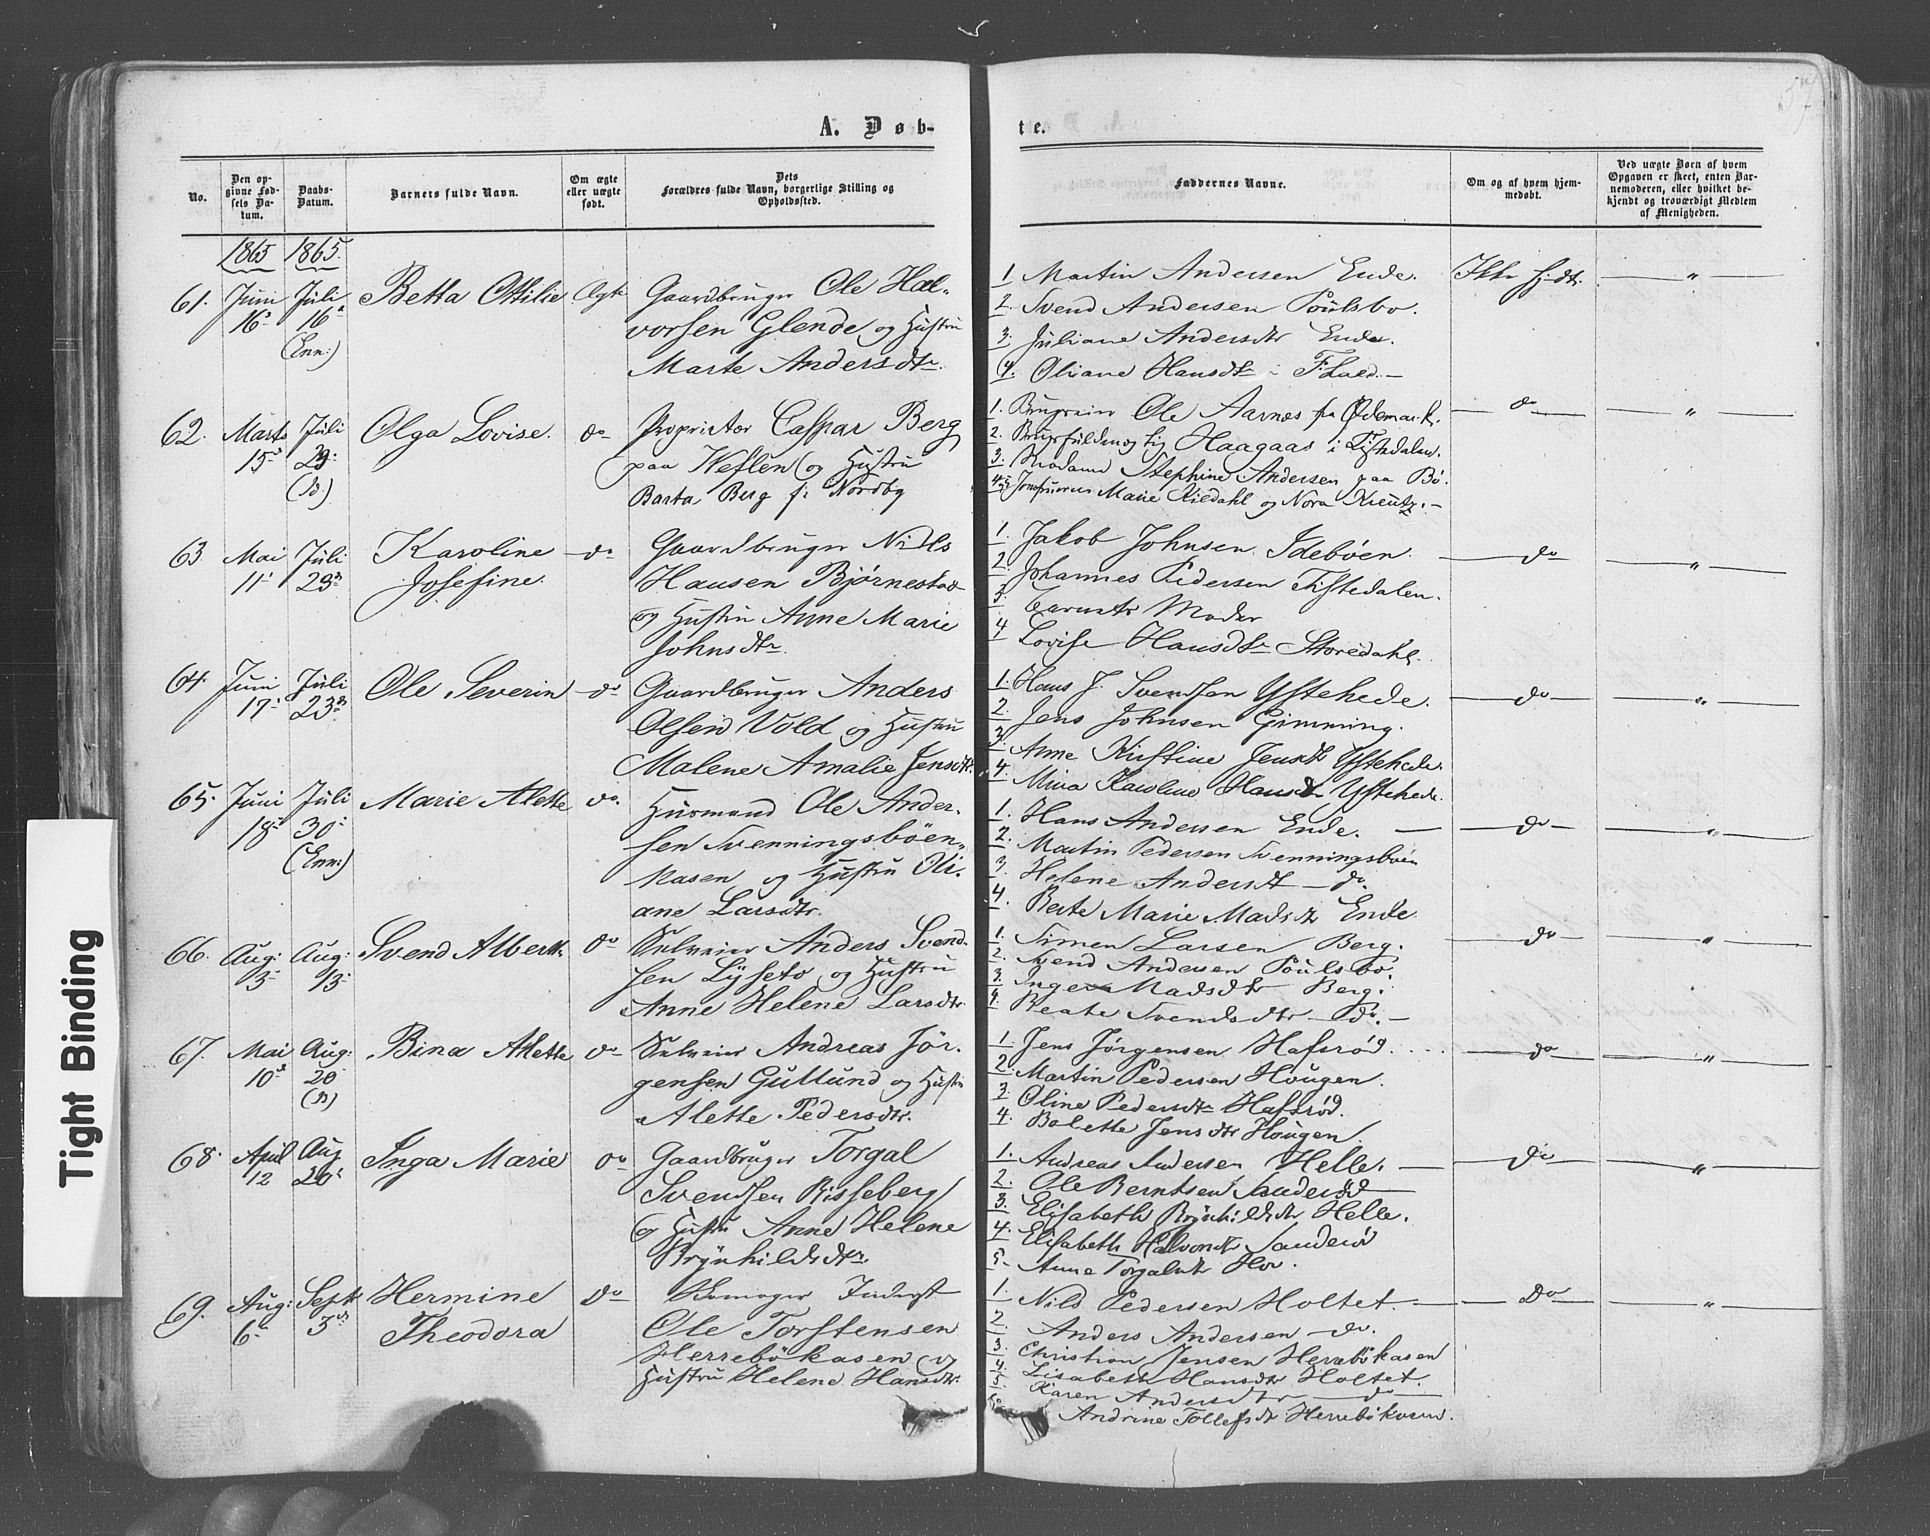 57
A. Døb-
te.
No.
Den op-
givne Fød-
sels Da-
tum.
Daabs-
Datum.
Barnets fulde Navn.
Om ægte
eller uægte
født.
Dets
Forældres fulde Navn, borgerlige Stilling og
Opholdssted.
Faddernes Navne.
Om og af hvem hjem-
medøbt.
Ved uægte Børn af hvem
Opgaven er skeet, enten Bar-
nemoderen, eller hvilket be-
kjendt og troværdigt Medlem
af Menigheden.
1865 1865.
61. Juni Juli Betta Ottilie Ægte Gaardbruger Ole Hal-
16 16
(Enn:)
vorsen Glende og Hustru
Marte Andersdtr.
1. Martin Andersen Ende. Ikke hjdt. "
2. Svend Andersen Poulsbo.
3. Juliane Andersdtr Ende.
4. Oliane Hansdtr i F:hald. —
62. Marts Juli Olga Lovise. do Proprietær Caspar Berg
15 23
(B.)
paa Veslen og Hustru
Barta Berg f: Nordby
1. Ole Aarnæs fra Ødemark. do "
2. Haagaas i Tistedalen.
3. Madame Stephine Andersen paa Bø.
4 Jomfruerne Marie Kildahl og Nora Kreutz. —
63. Mai Juli Karoline do Gaardbruger Nils
11 23 Josefine.
Hansen Bjørnestad
og Hustru Anne Marie
Johnsdtr.
1. Jakob Johnsen Idebøen. do "
2. Johannes Pedersen Tistedalen.
3. Barnets Moder
4 Lovise Hansdtr Storedahl.
64. Juni Juli Ole Severin do Gaardbruger Anders
17 23
Olsen Vold og Hustru
Malene Amalie Jensdtr.
1. Hans J. Svendsen Ystehede. do "
2. Jens Johnsen Gimming.
3. Anne Kirstine Jensdtr Ystehede.
4. Mina Karoline Hansdtr Ystehede.
65. Juni Juli Marie Alette do. Husmand Ole Ander-
18 30
(Enn:)
sen Svenningsbøen-
Masen og Hustru Oli-
ane Larsdtr.
1. Hans Andersen Ende. — do "
2. Martin Pedersen Svenningsbøen
3. Helene Andersdt — do.
4. Berte Marie Madsdtr Ende
66. Aug: Aug: Svend Albert. do Selveier Anders Svend-
3 13
sen Lyseto og Hustru
Anne Helene Larsdtr.
1. Simen Larsen Berg. do "
2. Svend Andersen Poulsbo.
3. Inger Madsdtr Berg.
4. Beate Svendsdtr — do. —
67. Mai Aug: Bina Alette do Selveier Andreas Jør-
10 20
(B)
gensen Gullund og Hustru
Alette Pedersdtr.
1. Jens Jørgensen Hafsrød. do "
2. Martin Pedersen Hougen.
3. Oline Pedersdtr Hafsrød.
4. Bolette Jensdtr Hougen.
68. April Aug Inga Marie do Gaardbruger Torgal
12 20
Svendsen Risseberg
og Hustru Anne Helene
Brynhildsdtr.
1. Andreas Andersen Helle. — do "
2. Ole Berntsen Sanderød
3. Elisabeth Brynhildsdtr Helle.
4. Elisabeth Halvorsdtr Sanderød
5 Anne Torgalsdtr Hov.
69. Aug: Septr Hermine do Inderst
6 3 Theodora
Ole Torstensen
Herrebøkasen og
Hustru Helene Hansdtr.
1. Nils Pedersen Holtet. do "
2. Anders Andersen — do.
3 Christian Jensen Herrebøkasen
4. Lisabeth Hansdtr Holtet.
5 Karen Andersdtr — do
6 Andrine Tollefsdtr Herrebøkasen.
Tight Binding